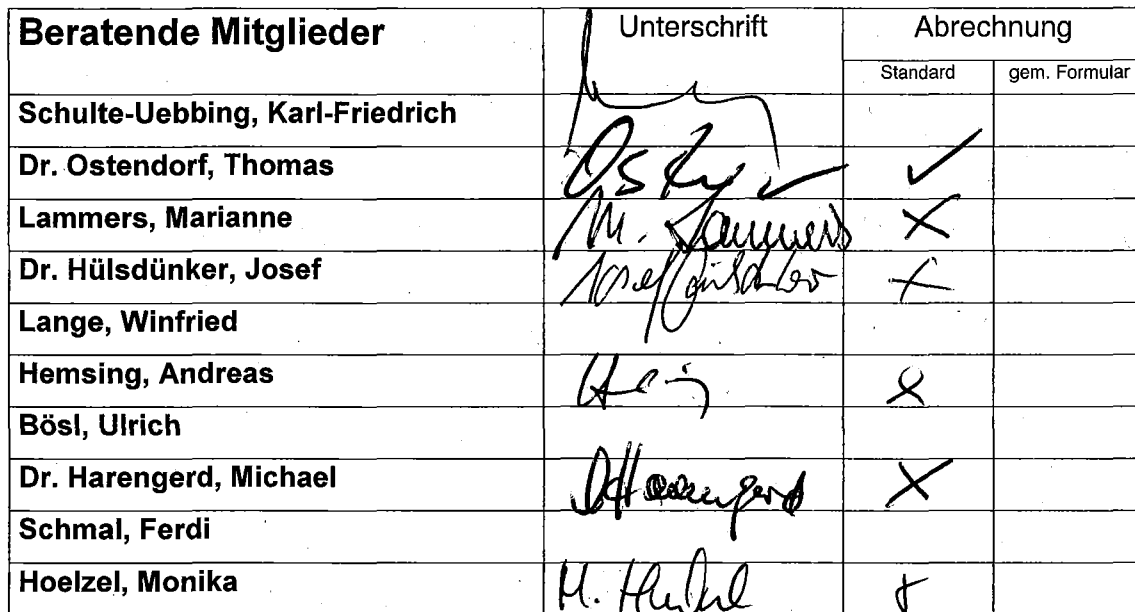 Beratende Mitglieder Unterschrift Abrechnung
Standard gem. Formular
Schulte-Uebbing, Karl-Friedrich
Dr. Ostendorf, Thomas
Lammers, Marianne M. Lammers
Dr. Hülsdünker, Josef Josef
Lange, Winfried
Hemsing, Andreas
Bösl, Ulrich
Dr. Harengerd, Michael Harengerd
Schmal, Ferdi
Hoelzel, Monika M.